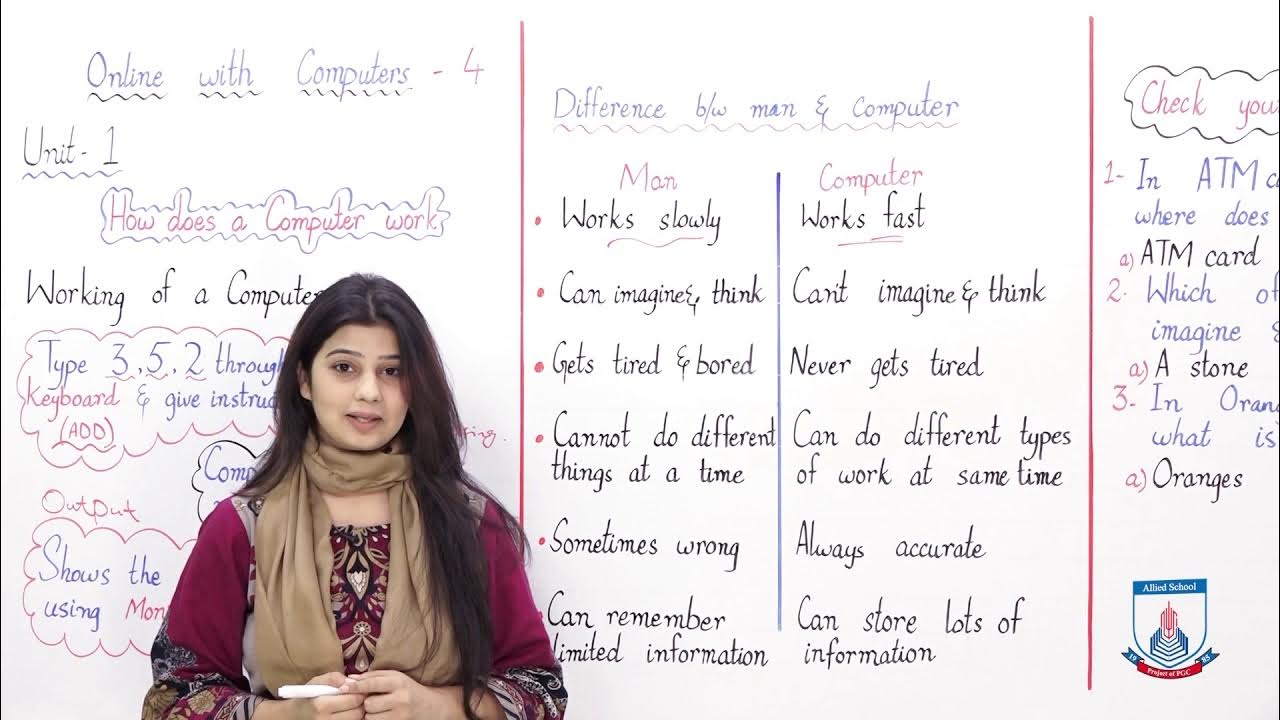 Online with Computers - 4
Unit- 1
How does a Computer work
Working of a Computer
Type 3, 5, 2 through
Keyboard & give
(ADD)
Output
Shows the
using
Difference b/w man & computer
Man Computer
• Works slowly Works fast
• Can imagine & think Can't imagine & think
• Gets tired & bored Never gets tired
• Cannot do different Can do different types
things at a time of work at same time
• Sometimes wrong Always accurate
• Can remember Can store lots of
limited information information
Check
1- In ATM
where does
a) ATM card
2. Which
imagine &
a) A stone
3- In
what is
a) Oranges
Allied School
19 85
Project of PGC